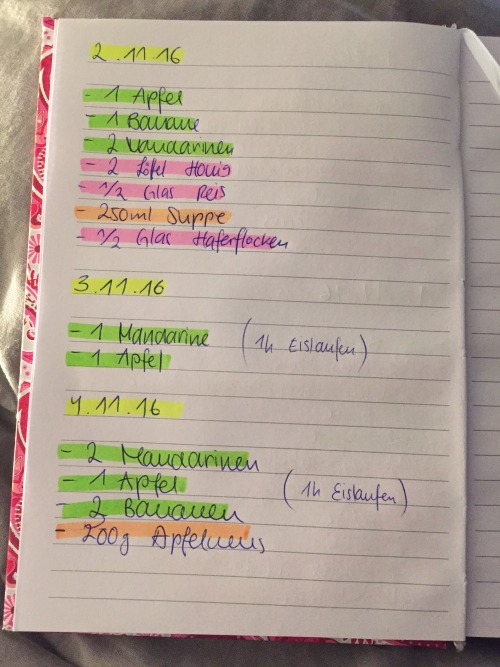 2.11.16
- 1 Apfel
- 1 Banane
- 2 Mandarinen
- 2 Löfel Honig
- 1/2 Glas Reis
- 250ml Suppe
- 1/2 Glas Haferflocken
3.11.16
- 1 Mandarine (1h Eislaufen)
- 1 Apfel
4.11.16
- 2 Mandarinen
- 1 Apfel (1h Eislaufen)
- 2 Bananen
- 200g Apfelmus